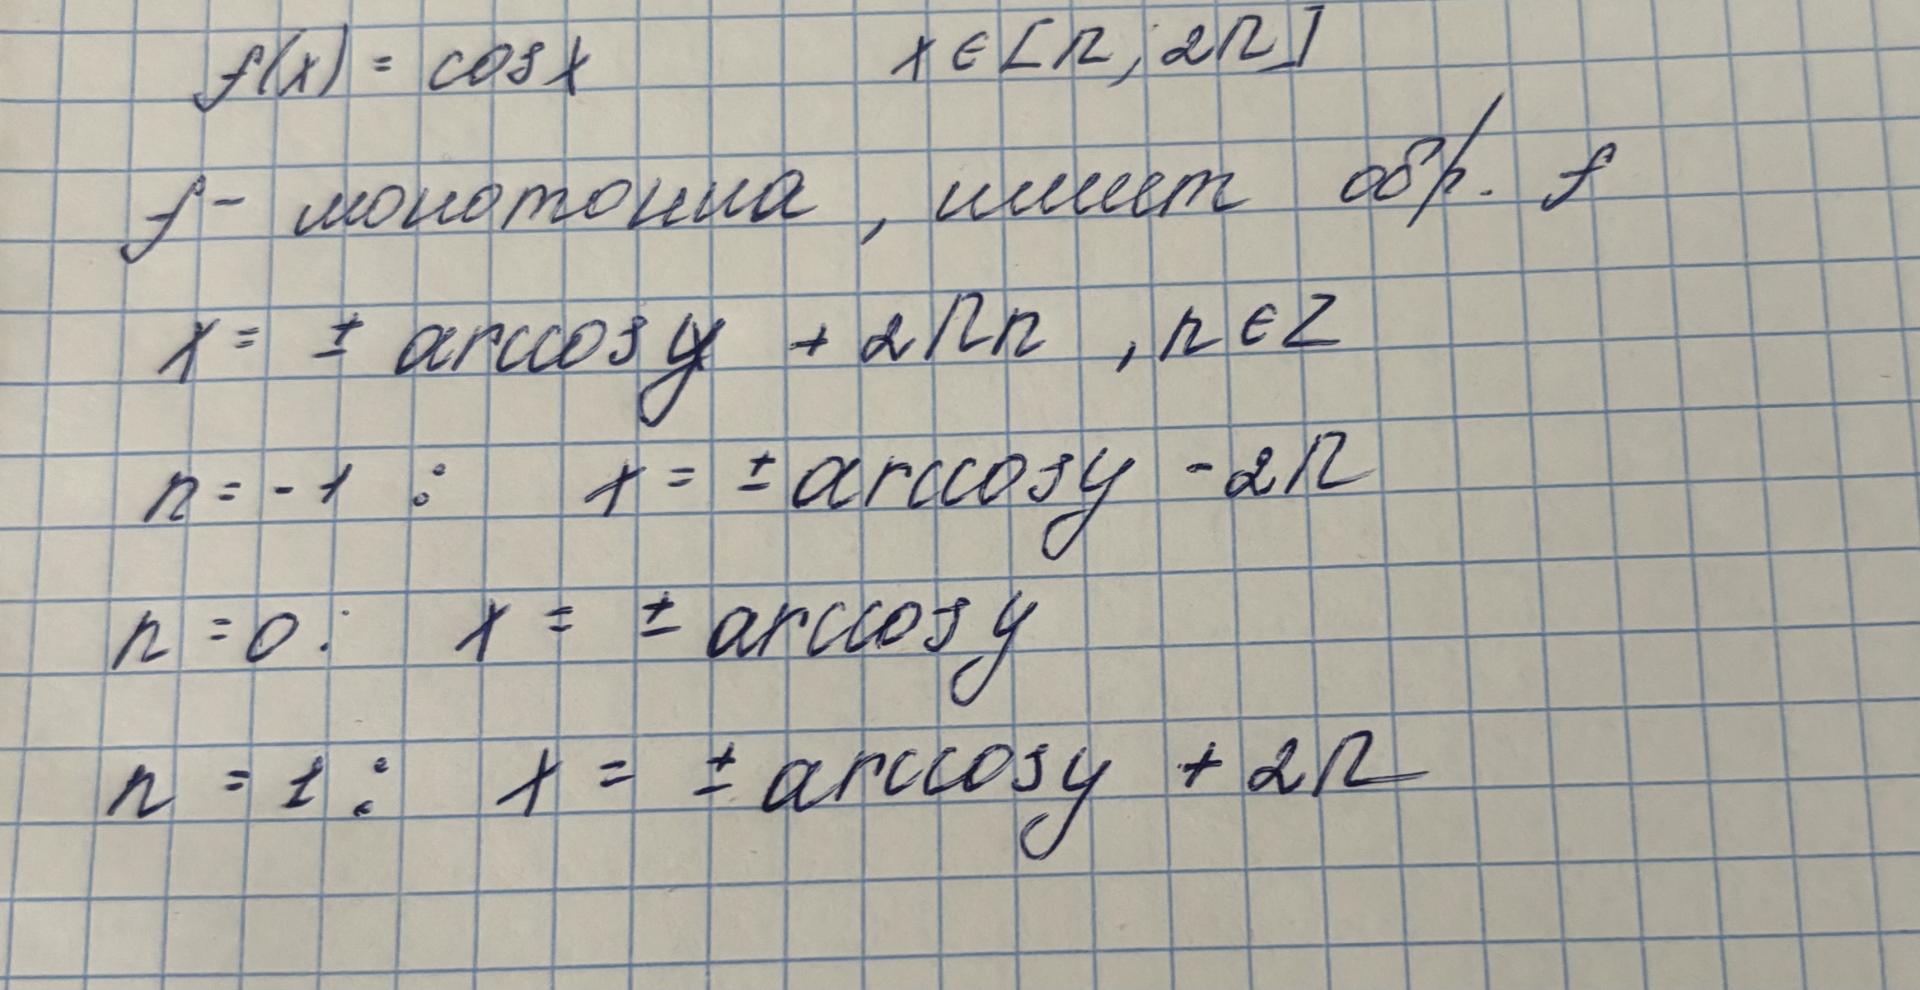 f(x) = cosx x ∈ [π; 2π]
f - монотонна, имеет обр. f
x = ± arccosy + 2πn, n ∈ Z
n = -1 : x = ± arccosy - 2π
n = 0 : x = ± arccosy
n = 1 : x = ± arccosy + 2π